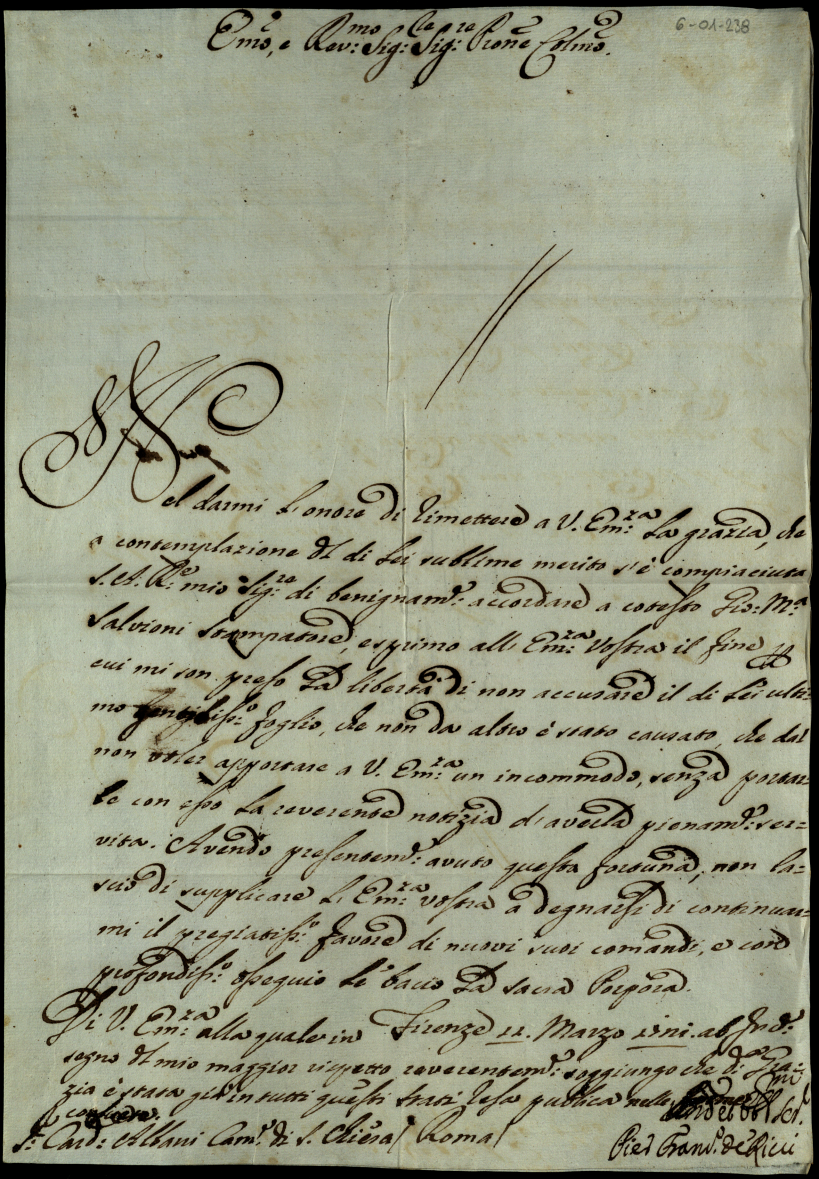 6-01-238
Emo, e Rev:mo Sig: Sig:re Prone Colmo.
Nel darmi l'onore di rimettere a V. Em:za la grazia, che
a contemplazione del di Lei sublime merito s'è compiaciuta
S. A. R.e mio Sig:re di benignam:e accordare a cotesto Gio: M:a
Salvioni Stampatore, esprimo all' Em:za Vostra il fine p
cui mi son preso la libertà di non accusare il di Lei ulti=
mo gentiliss:o foglio, che non da altro è stato causato, che dal
non voler apportare a V. Em:za un incommodo, senza portar=
le con esso la reverente notizia d'averla pienam:e ser=
vita. Avendo presentem:e avuto questa fortuna, non la=
scio di supplicare l' Em:za vostra a degnarsi di continuar=
mi il pregiatiss:o favore di nuovi suoi comandi, e con
profondiss:o ossequio le bacio la sacra Porpora.
Di V. Em:za alla quale in Firenze 11. Marzo ab Inc:e
segno del mio maggior rispetto reverentem:e soggiungo che di Gra=
zia è stata già in tutti questi stati resa publica nelle forme
consuete.
S:r Card: Albani Cam:o di S. Chiesa / Roma / Um:o ed Obl: Ser:e
Pier Fran:o de' Ricci